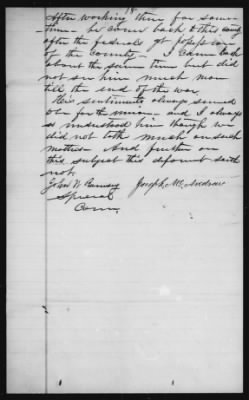 18
After working there for some
time he came back to this county
after the federals got possession
of the county - I came back
about the same time but did
not see him much more
till the end of the war.
His sentiments always seemed
to be for the union - and I always
so understood him though we
did not talk much on such
matters - And further on
this subject this deponent saith
not.
John N Ramsey Joseph McAndrew
Special
Com.